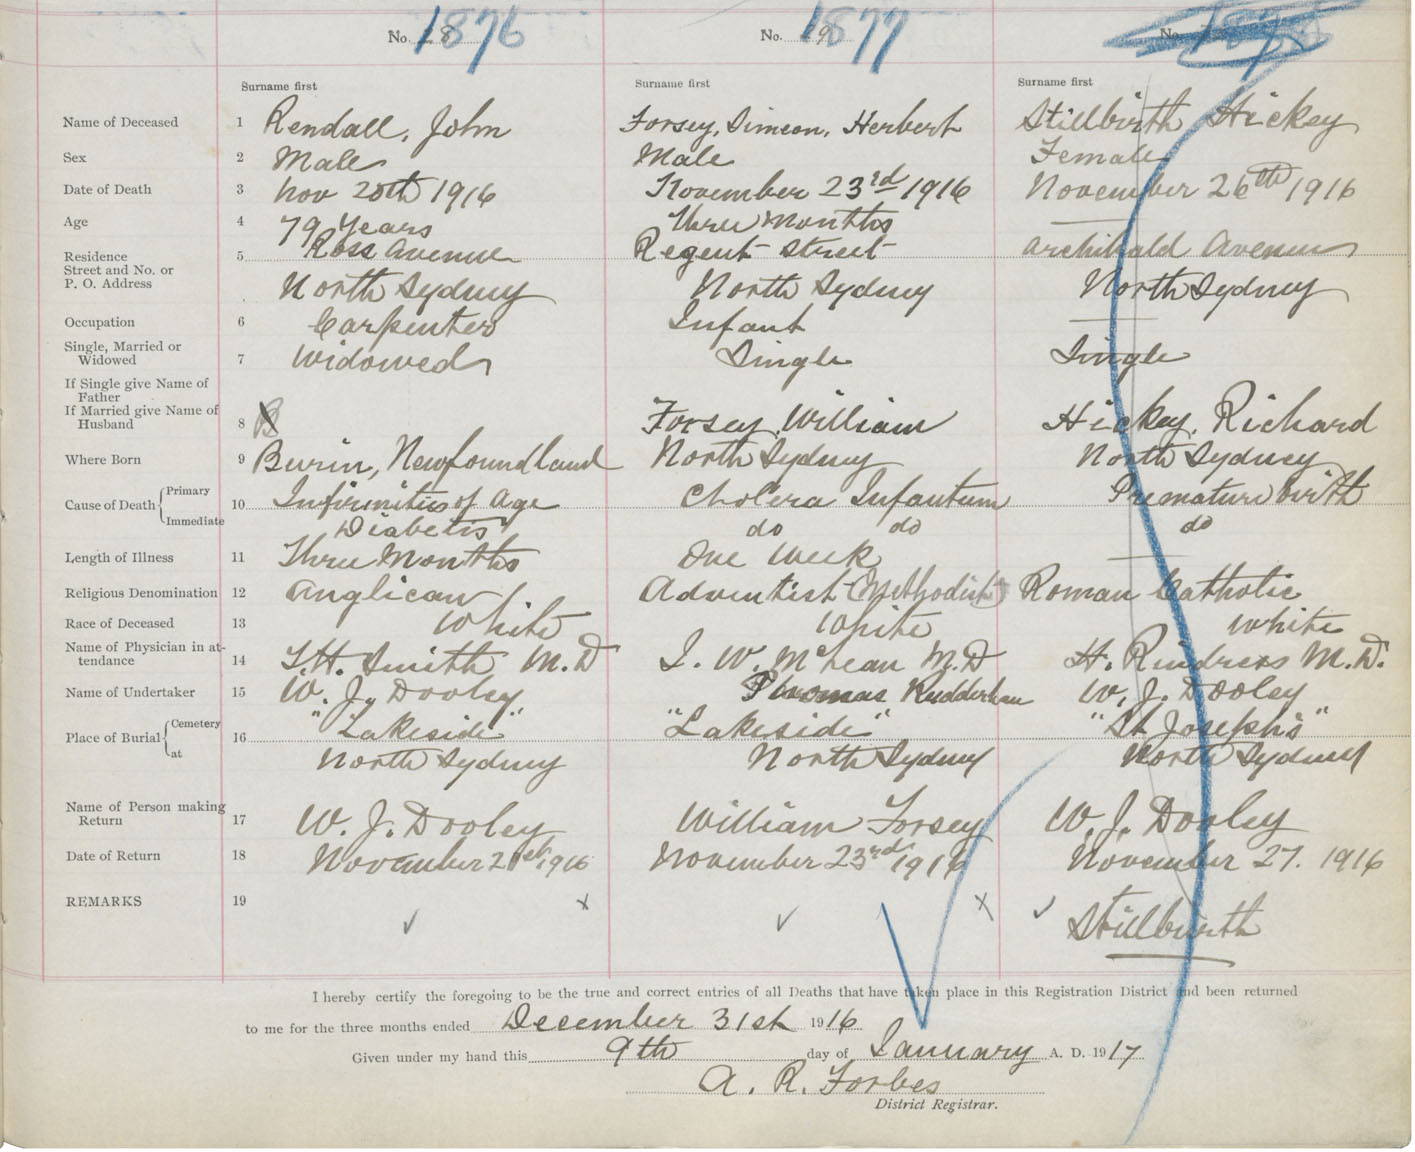 No. 18 1876 No. 19 1877 No.
Surname first Surname first Surname first
Name of Deceased 1 Rendall, John Forsey, Simeon, Herbert Stillbirth Hickey
Sex 2 Male Male Female
Date of Death 3 Nov 20th 1916 November 23rd 1916 November 26th 1916
Age 4 79 Years Three Months —
Residence 5 Ross Avenue Regent Street Archibald Avenue
Street and No. or
P. O. Address North Sydney North Sydney North Sydney
Occupation 6 Carpenter Infant —
Single, Married or
Widowed 7 Widowed Single Single
If Single give Name of
Father
If Married give Name of
Husband 8 Forsey, William Hickey, Richard
Where Born 9 Burin, Newfoundland North Sydney North Sydney
Cause of Death Primary 10 Infirmities of Age Cholera Infantum Premature birth
Immediate Diabetis do do do
Length of Illness 11 Three Months One Week —
Religious Denomination 12 Anglican Adventist (Methodist) Roman Catholic
Race of Deceased 13 White White White
Name of Physician in at-
tendance 14 Smith M.D J. W. McLean M.D H. Rindress M.D.
Name of Undertaker 15 W. J. Dooley Thomas Rudderham W. J. Dooley
Place of Burial Cemetery 16 "Lakeside" "Lakeside" "St Joseph's"
at North Sydney North Sydney North Sydney
Name of Person making
Return 17 W. J. Dooley William Forsey W. J. Dooley
Date of Return 18 November 21st 1916 November 23rd 1916 November 27. 1916
REMARKS 19 Stillbirth
I hereby certify the foregoing to be the true and correct entries of all Deaths that have taken place in this Registration District and been returned
to me for the three months ended December 31st 1916
Given under my hand this 9th day of January A. D. 1917
A. R. Forbes
District Registrar.